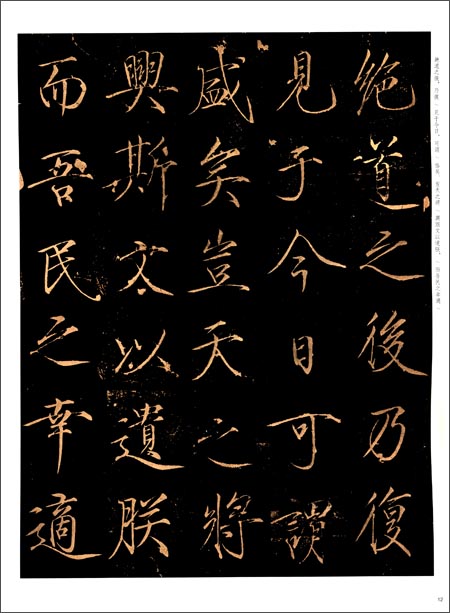 絶道之後乃復
見于今日可謂
盛矣豈天之將
興斯文以遺朕
而吾民之幸適
絶道之後，乃復﹨見于今日，可謂﹨盛矣，豈天之將﹨興斯文以遺朕，﹨而吾民之幸適﹨
12